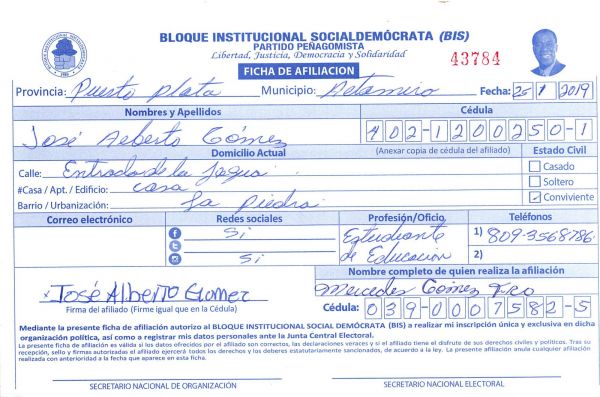 BLOQUE INSTITUCIONAL SOCIALDEMÓCRATA (BIS)
PARTIDO PEÑAGOMISTA
Libertad, Justicia, Democracia y Solidaridad
43784
FICHA DE AFILIACION
Provincia: Puerto Plata Municipio: Altamira Fecha: 25/1/2019
Nombres y Apellidos Cédula
José Alberto Gómez 402-1200250-1
Domicilio Actual (Anexar copia de cédula del afiliado) Estado Civil
Calle: Entrada de la Jagua Casado
#Casa / Apt. / Edificio: casa Soltero
Barrio / Urbanización: La Piedra Conviviente
Correo electrónico Redes sociales Profesión/Oficio Teléfonos
Si Estudiante 1) 809-3568786
Si de Educacion 2)
Nombre completo de quien realiza la afiliación
José Alberto Gomez Mercedes Gómez
Firma del afiliado (Firme igual que en la Cédula) Cédula: 039-0007582-5
Mediante la presente ficha de afiliación autorizo al BLOQUE INSTITUCIONAL SOCIAL DEMÓCRATA (BIS) a realizar mi inscripción única y exclusiva en dicha
organización política, así como a registrar mis datos personales ante la Junta Central Electoral.
La presente ficha de afiliación es válida si los datos ofrecidos por el afiliado son correctos, las declaraciones veraces y si el afiliado tiene el disfrute de sus derechos civiles y políticos. Tras su
recepción, sello y firmas autorizadas el afiliado ejercerá todos los derechos y los deberes estatutariamente sancionados, de acuerdo a la ley. La presente afiliación anula cualquier afiliación
realizada con anterioridad a la fecha que aparece en esta ficha.
SECRETARIO NACIONAL DE ORGANIZACIÓN SECRETARIO NACIONAL ELECTORAL